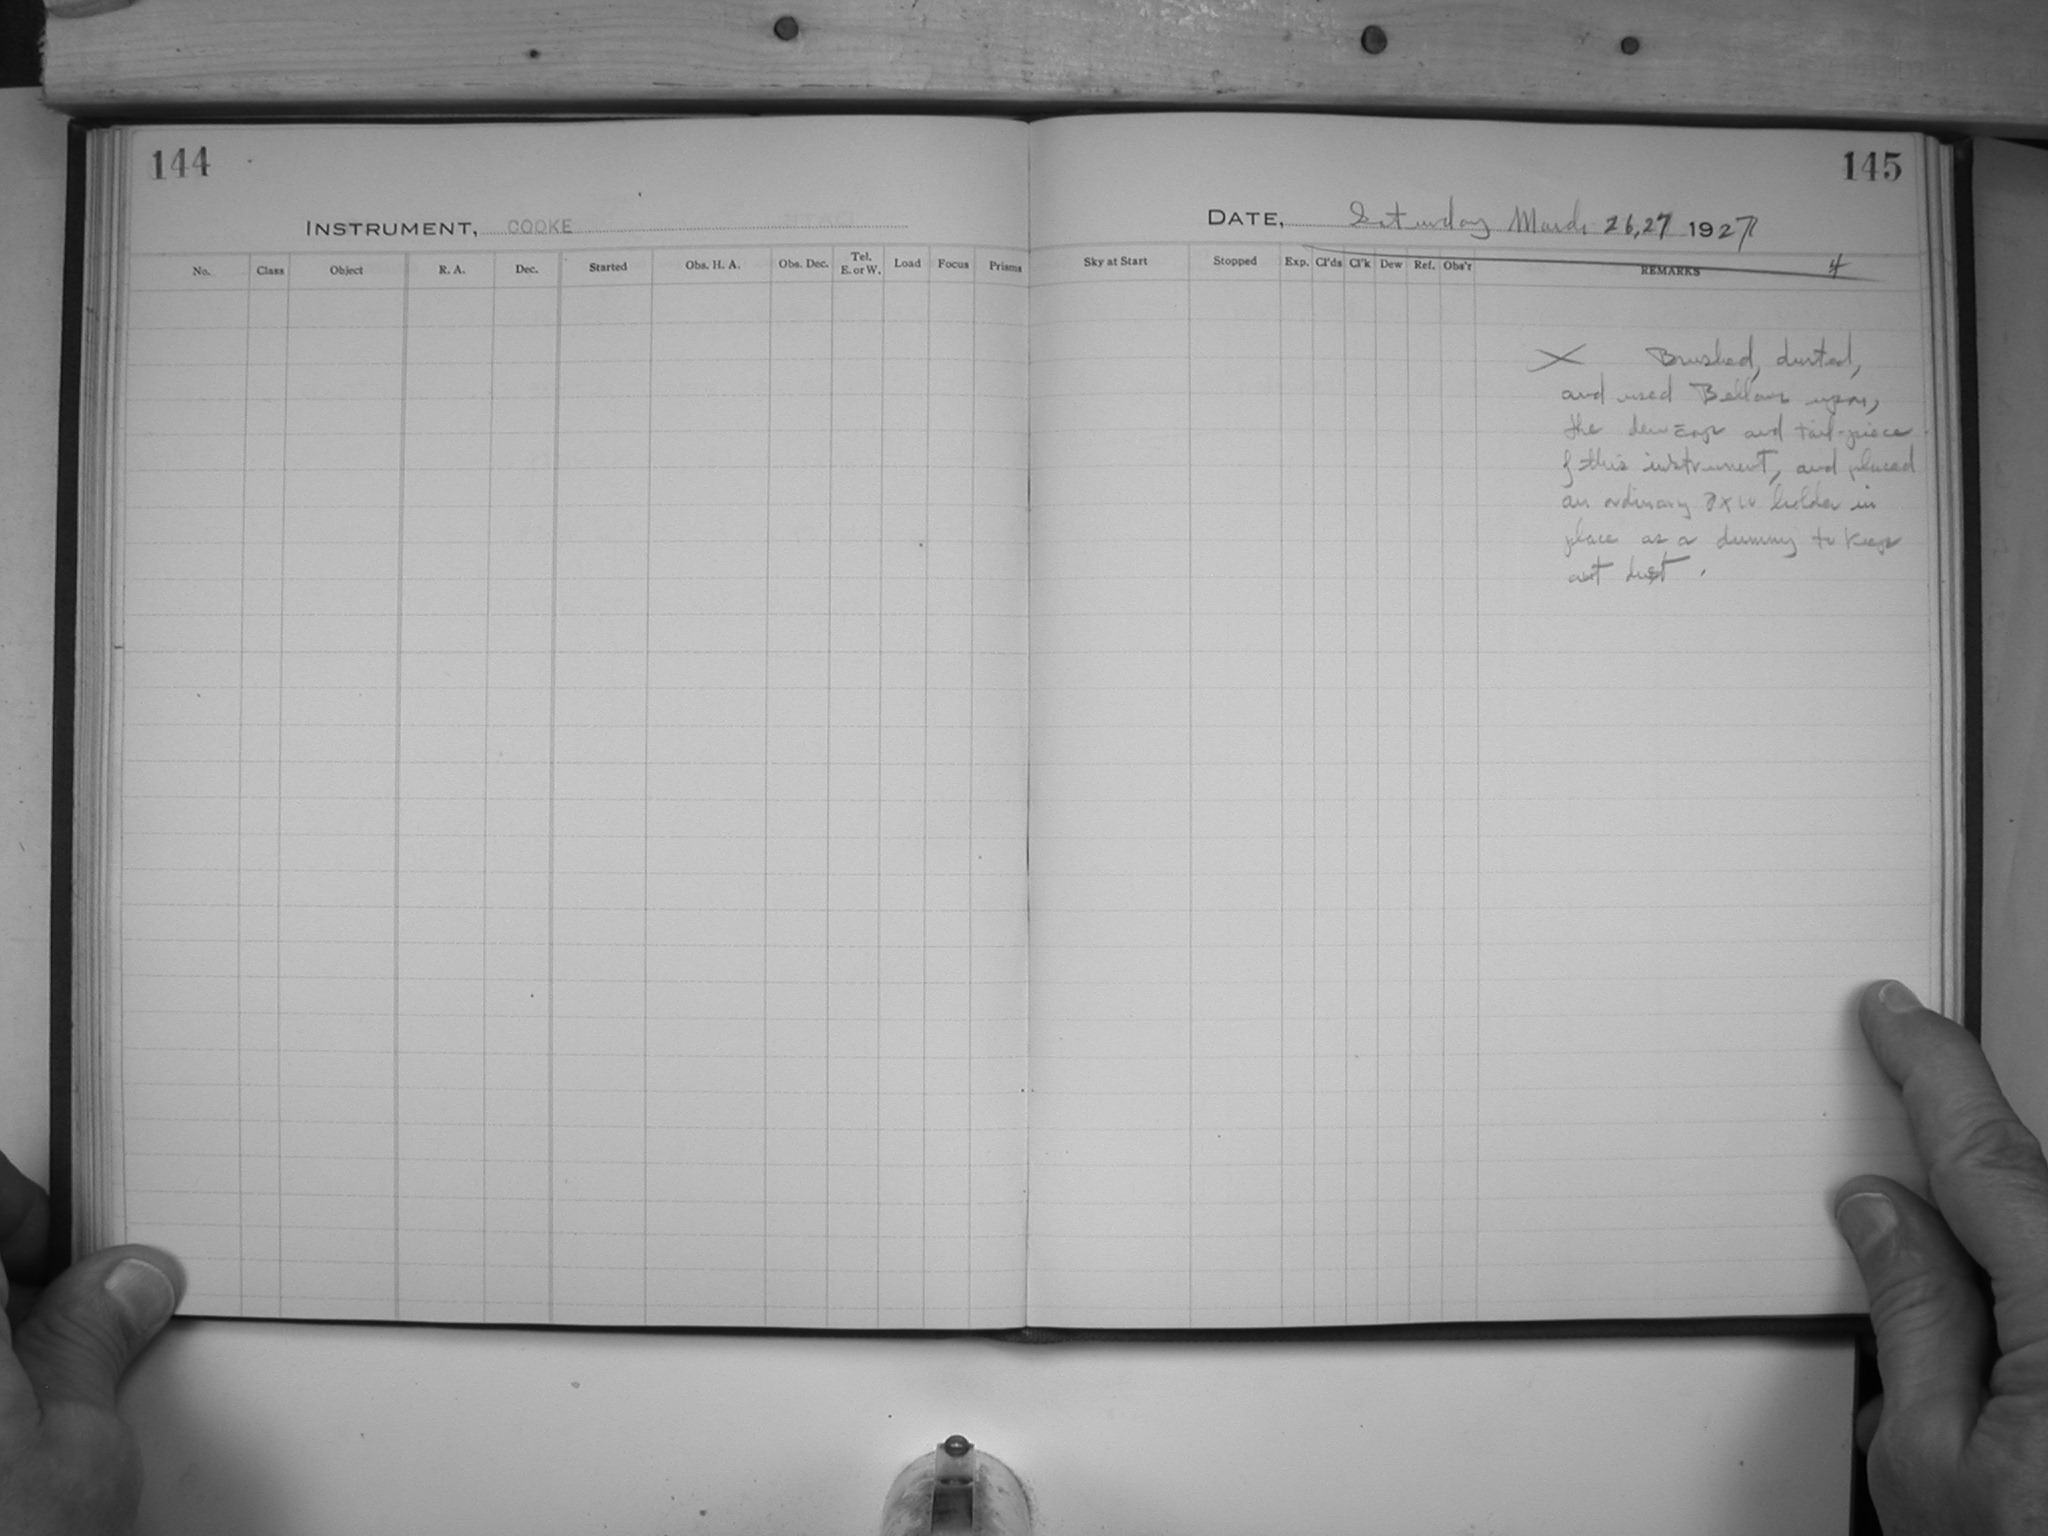 144
INSTRUMENT, COOKE
No. Class Object R. A. Dec. Started Obs. H. A. Obs. Dec. Tel. E. or W. Load Focus Prisms
145
DATE, Saturday March 26,27 1927
Sky at Start Stopped Exp. Cl'ds Cl'k Dew Ref. Obs'r REMARKS
4
X Brushed, dusted,
and used Bellows upon,
the dew cap and tail-piece
of this instrument, and placed
an ordinary 8x10 holder in
place as a dummy to keep
out dust.